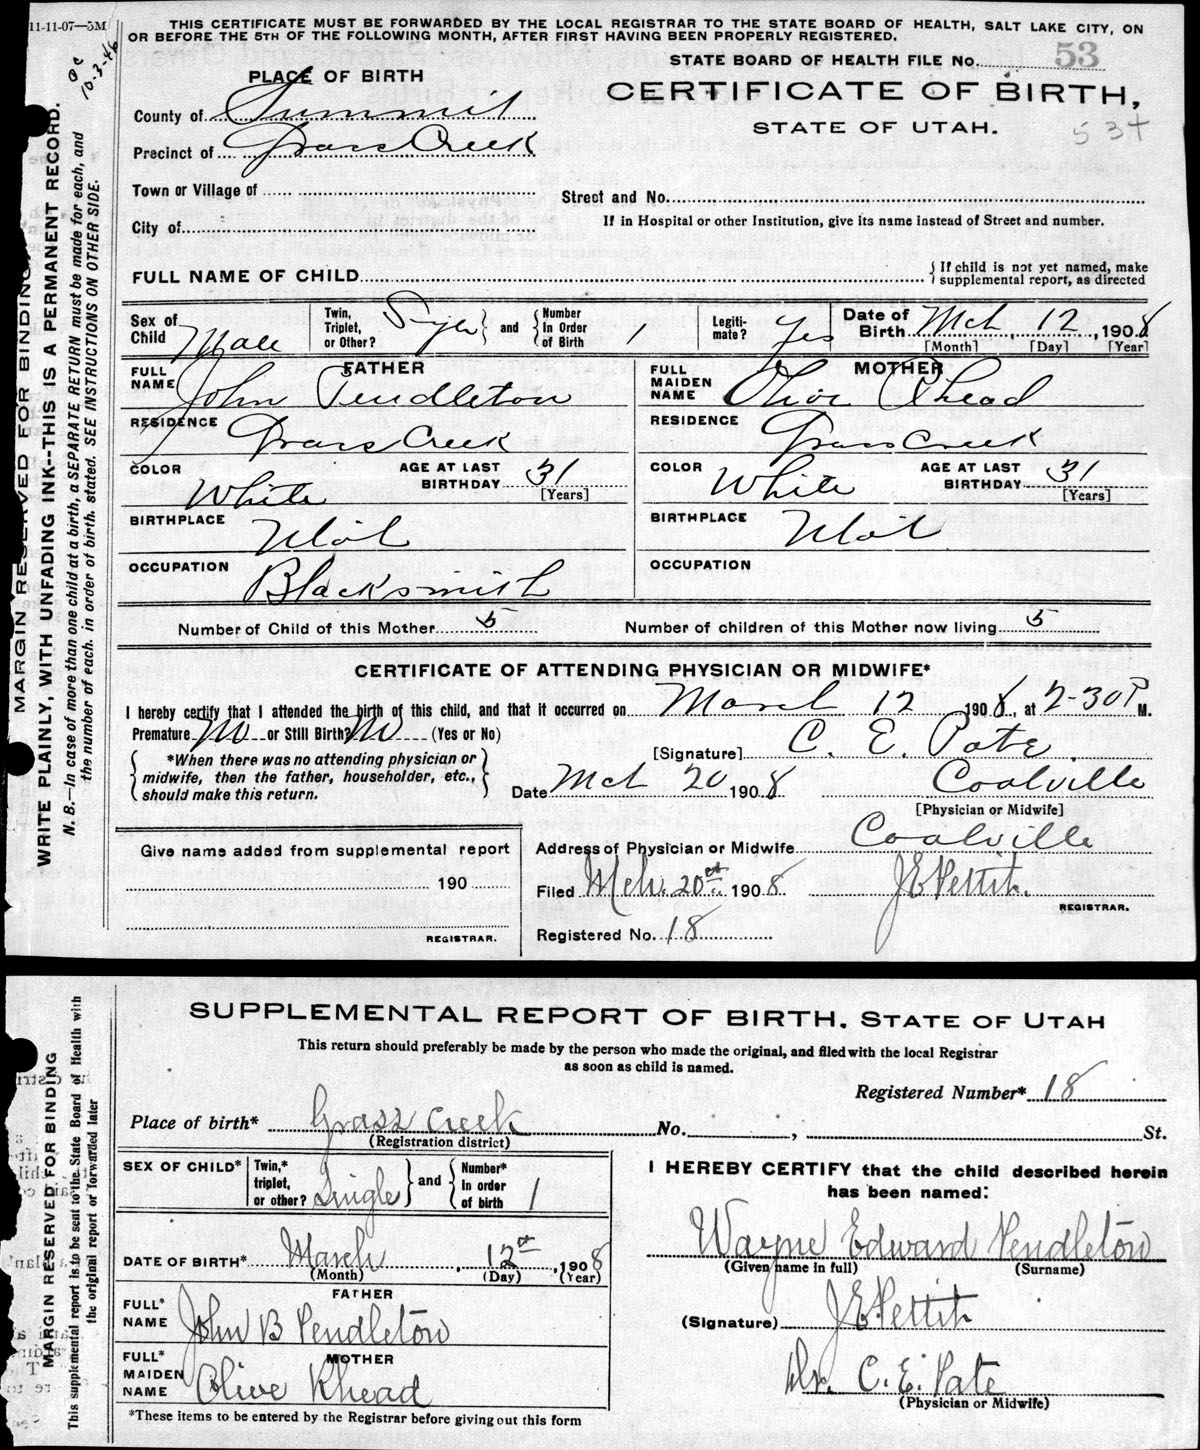 11-11-07—5M
THIS CERTIFICATE MUST BE FORWARDED BY THE LOCAL REGISTRAR TO THE STATE BOARD OF HEALTH, SALT LAKE CITY, ON
OR BEFORE THE 5TH OF THE FOLLOWING MONTH, AFTER FIRST HAVING BEEN PROPERLY REGISTERED.
10-3-46
STATE BOARD OF HEALTH FILE No. 53
CERTIFICATE OF BIRTH,
STATE OF UTAH.
534
PLACE OF BIRTH
County of Summit
Precinct of Grass Creek
Town or Village of
Street and No.
City of
If in Hospital or other Institution, give its name instead of Street and number.
FULL NAME OF CHILD
{ If child is not yet named, make
supplemental report, as directed
Sex of Child Male
Twin, Triplet, or Other? Single } and { Number In Order of Birth 1
Legiti-mate? Yes
Date of Birth Mch 12, 1908
[Month] [Day] [Year]
FATHER
FULL NAME John Pendleton
RESIDENCE Grass Creek
COLOR White AGE AT LAST BIRTHDAY 31 [Years]
BIRTHPLACE Utah
OCCUPATION Blacksmith
MOTHER
FULL MAIDEN NAME Olive Rhead
RESIDENCE Grass Creek
COLOR White AGE AT LAST BIRTHDAY 31 [Years]
BIRTHPLACE Utah
OCCUPATION
Number of Child of this Mother 5 Number of children of this Mother now living 5
CERTIFICATE OF ATTENDING PHYSICIAN OR MIDWIFE*
I hereby certify that I attended the birth of this child, and that it occurred on March 12 1908, at 2-30 P M.
Premature No or Still Birth? No (Yes or No)
[Signature] C. E. Pate
{ *When there was no attending physician or
midwife, then the father, householder, etc.,
should make this return. }
Date Mch 20 1908 Coalville
[Physician or Midwife]
Give name added from supplemental report
190
REGISTRAR.
Address of Physician or Midwife Coalville
Filed Mch. 20 1908 J E Pettit.
REGISTRAR.
Registered No. 18
MARGIN RESERVED FOR BINDING,
WRITE PLAINLY, WITH UNFADING INK--THIS IS A PERMANENT RECORD.
N. B.—In case of more than one child at a birth, a SEPARATE RETURN must be made for each, and
the number of each, in order of birth, stated. SEE INSTRUCTIONS ON OTHER SIDE.
SUPPLEMENTAL REPORT OF BIRTH, STATE OF UTAH
This return should preferably be made by the person who made the original, and filed with the local Registrar
as soon as child is named.
Registered Number* 18
Place of birth* Grass Creek No. , St.
(Registration district)
SEX OF CHILD*
Twin,* triplet, or other? Single } and { Number* In order of birth 1
DATE OF BIRTH* March, 12, 1908
(Month) (Day) (Year)
FATHER
FULL* NAME John B Pendleton
MOTHER
FULL* MAIDEN NAME Olive Rhead
*These items to be entered by the Registrar before giving out this form
I HEREBY CERTIFY that the child described herein
has been named:
Wayne Edward Pendleton
(Given name in full) (Surname)
(Signature) J E Pettit
Dr. C. E. Pate
(Physician or Midwife)
MARGIN RESERVED FOR BINDING
This supplemental report is to be sent to the State Board of Health with
the original report or forwarded later